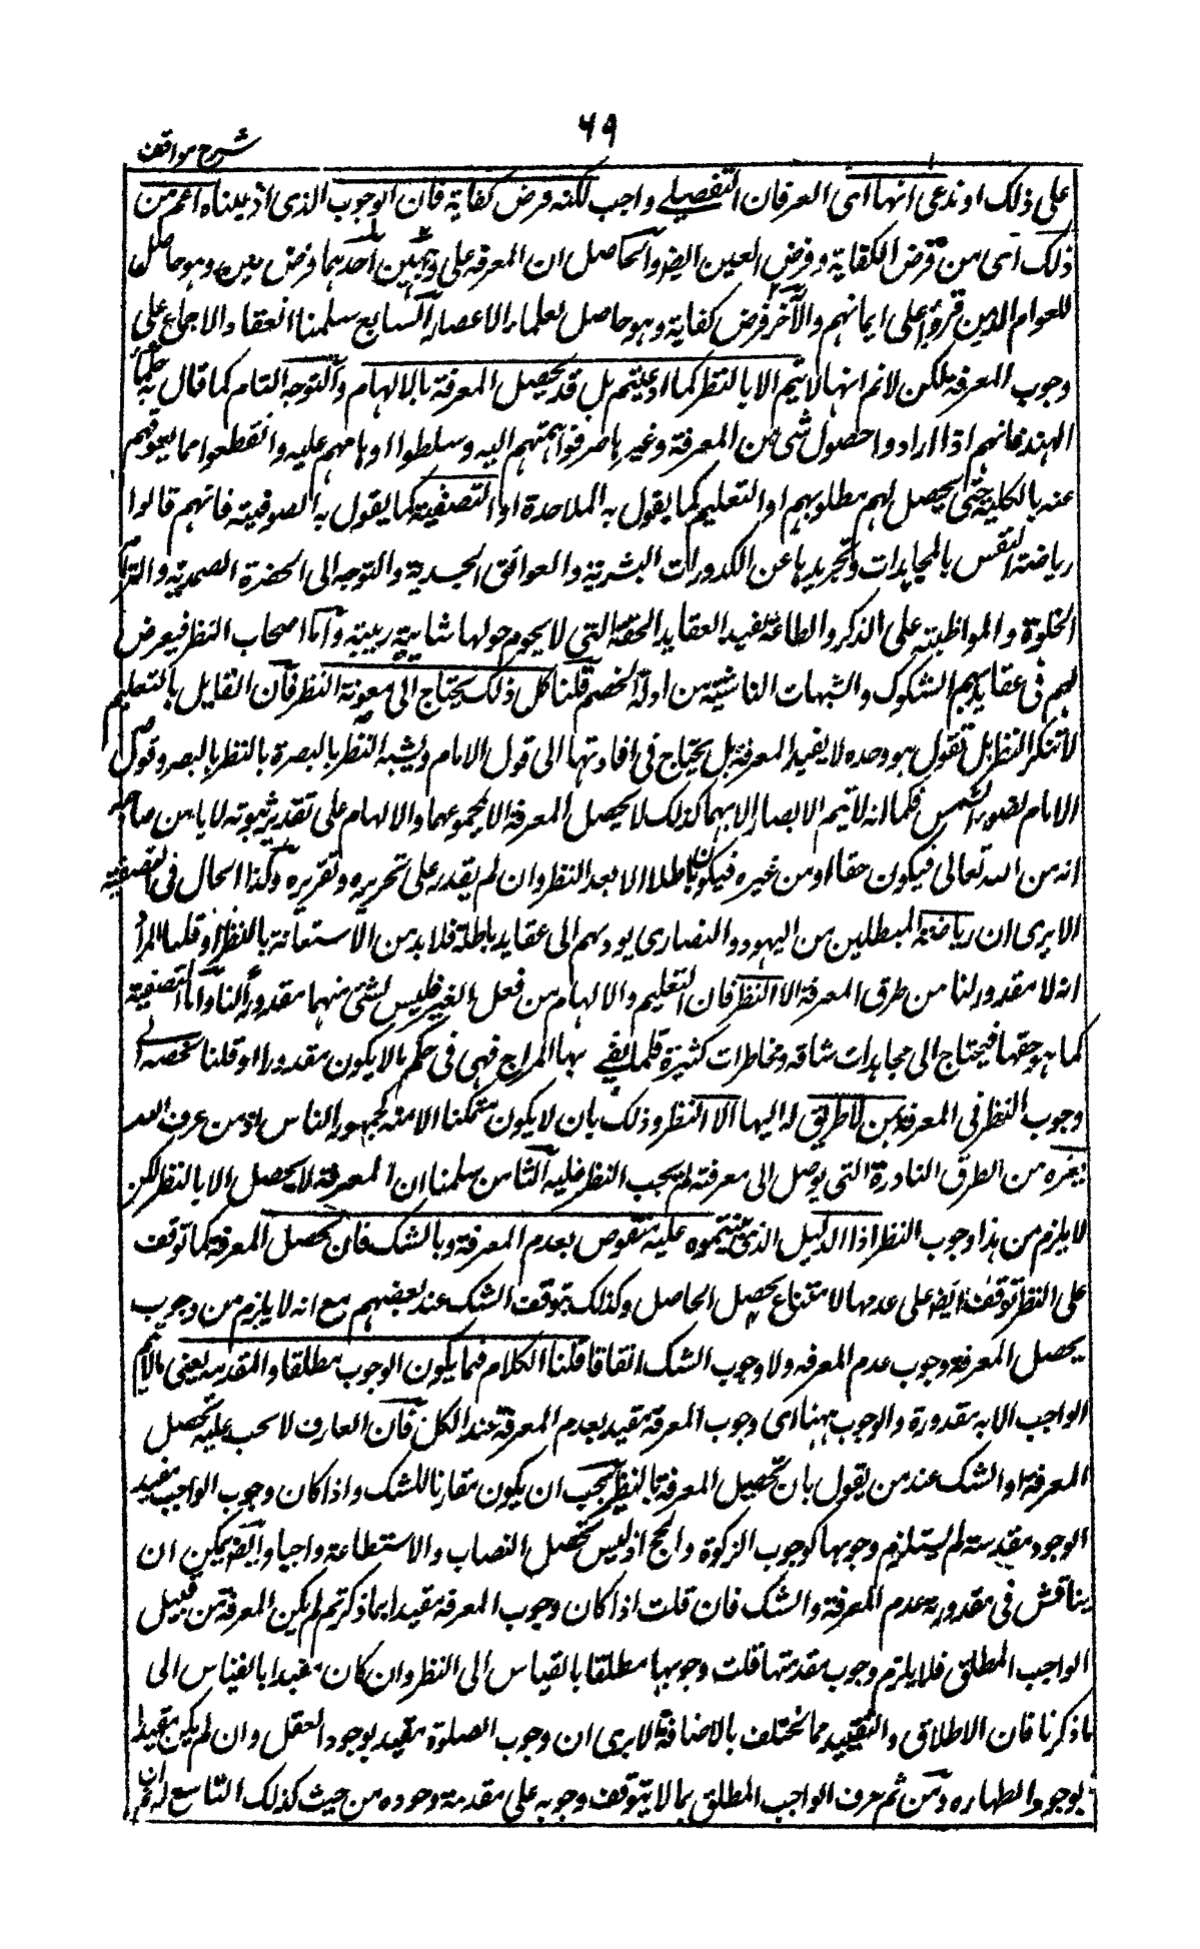 ٦٩
شرح مواقف
على ذلك او ندعى انها اى العرفان التفصيلے واجب لكنه فرض كفاية فان الوجوب الذى ادعيناه اعم من
ذلك اى من فرض الكفاية وفرض العين ايضا والحاصل ان المعرفة على وجهين احدهما فرض عين وهو حاصل
للعوام الذين قرروا على ايمانهم والآخر فرض كفاية وهو حاصل لعلماء الاعصار السابع سلمنا انعقاد الاجماع على
وجوب المعرفة لكن لانم انها لا تتم الا بالنظر كما ادعيتم بل قد تحصيل المعرفة بالالهام والتوجه التام كما قال به حكماء
الهند فانهم اذا ارادوا حصول شئ من المعرفة وغيرها صرفوا همتهم اليه وسلطوا اوهامهم عليه وانقطعوا مما يعوقهم
عنه بالكلية حتى يحصل لهم مطلوبهم او التعليم كما يقول به الملاحدة او التصفية كما يقول به الصوفية فانهم قالوا
رياضة النفس بالمجاهدات وتجريدها عن الكدورات البشرية والعوائق الجسدية والتوجه الى الحضرة الصمدية والتزام
الخلوة والمواظبة على الذكر والطاعة تفيد العقايد الحقة التى لا يحوم حولها شايبة ريبة واما اصحاب النظر فيعرض
لهم فى عقايدهم الشكوك والشبهات الناشية من ادلة الخصم قلنا كل ذلك يحتاج الى معونة النظر فان القايل بالتعليم
لا تنكر النظر بل تقول هو وحده لا يفيد المعرفة بل يحتاج فى افادتها الى قول الامام ويشبه النظر بالبصرة بالنظر بالبصر وقول
الامام بضوء الشمس فكما انه لا يتم الابصار الا بهما كذلك لا يحصل المعرفة الا بمجموعهما والالهام على تقدير ثبوته لا يامن صاحبه
انه من الله تعالى فيكون حقا او من غيره فيكون باطلا الا بعد النظر وان لم يقدر على تحريره وتقريره وكذا الحال فى التصفية
الا يرى ان رياضة المبطلين من اليهود والنصارى يودهم الى عقايد باطلة فلا بد من الاستعانة بالنظر او قلنا المراد
انه لا مقدور لنا من طرق المعرفة الا النظر فان التعليم والالهام من فعل الغير فليس لشئ منهما مقدورا لنا واما التصفية
كما هو حقها فيحتاج الى مجاهدات شاقة ومخاطرات كثيرة قلما يفى بها المزاج فهى فى حكم ما لا يكون مقدورا او قلنا نخصه اى
وجوب النظر فى المعرفة بمن لا طريق له اليها الا النظر وذلك بان لا يكون متمكنا الا منه كجمهور الناس اذ من عرف الله
بغيره من الطرق النادرة التى يوصل الى معرفته لم يجب النظر عليه الثامن سلمنا ان المعرفة لا يحصل الا بالنظر لكن
لا يلزم من هذا وجوب النظر اذ الدليل الذى بنيتموه عليه منقوض بعدم المعرفة وبالشك فان تحصيل المعرفة كما توقف
على النظر توقف ايضا على عدمها لامتناع تحصيل الحاصل وكذلك يتوقف الشك عند بعضهم مع انه لا يلزم من وجوب
تحصيل المعرفة وجوب عدم المعرفة ولا وجوب الشك اتفاقا قلنا الكلام فيما يكون الوجوب مطلقا والمقدمة يعنى ما لا يتم
الواجب الا به مقدورة والوجوب ههنا اى وجوب المعرفة مقيد بعدم المعرفة عند الكل فان العارف لا يجب عليه تحصيل
المعرفة او الشك عند من يقول بان تحصيل المعرفة بالنظر يجب ان يكون مقارنا للشك واذا كان وجوب الواجب مقيد
الوجود مقدمته لم يستلزم وجوبها كوجوب الزكوة والحج اذ ليس تحصيل النصاب والاستطاعة واجبا وايضا يمكن ان
يناقش فى مقدورية عدم المعرفة والشك فان قلت اذا كان وجوب المعرفة مقيدا بما ذكرتم لم يكن المعرفة من قبيل
الواجب المطلق فلا يلزم وجوب مقدمتها قلت وجوبها مطلقا بالقياس الى النظر وان كان مقيدا بالقياس الى
ما ذكرنا فان الاطلاق والتقييد مما تختلف بالاضافة الا يرى ان وجوب الصلوة مقيد بوجود العقل وان لم يكن مقيدا
بوجود الطهارة ومن ثم عرف الواجب المطلق بما لا يتوقف وجوبه على مقدمة وجوده من حيث كذلك التاسع لم ان